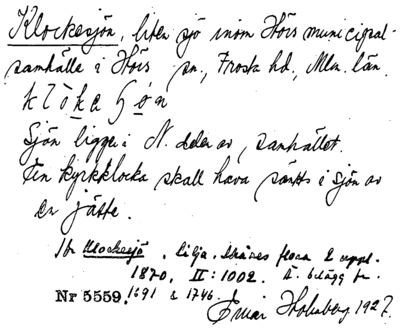 Klockesjön, liten sjö inom Hörs municipal-
samhälle i Hörs sn., Frosta hd., Mlm. län.
klòka ʃøn
Sjön ligger i N. delen av samhället.
En kyrkklocka skall hava sänkts i sjön av
en jätte.
Jfr Klockesjö, Lilja, Skånes flora 2 uppl.
1870, II: 1002. Ä. belägg fr.
Nr 5559. 1691 & 1746.
Einar Holmberg 1927.